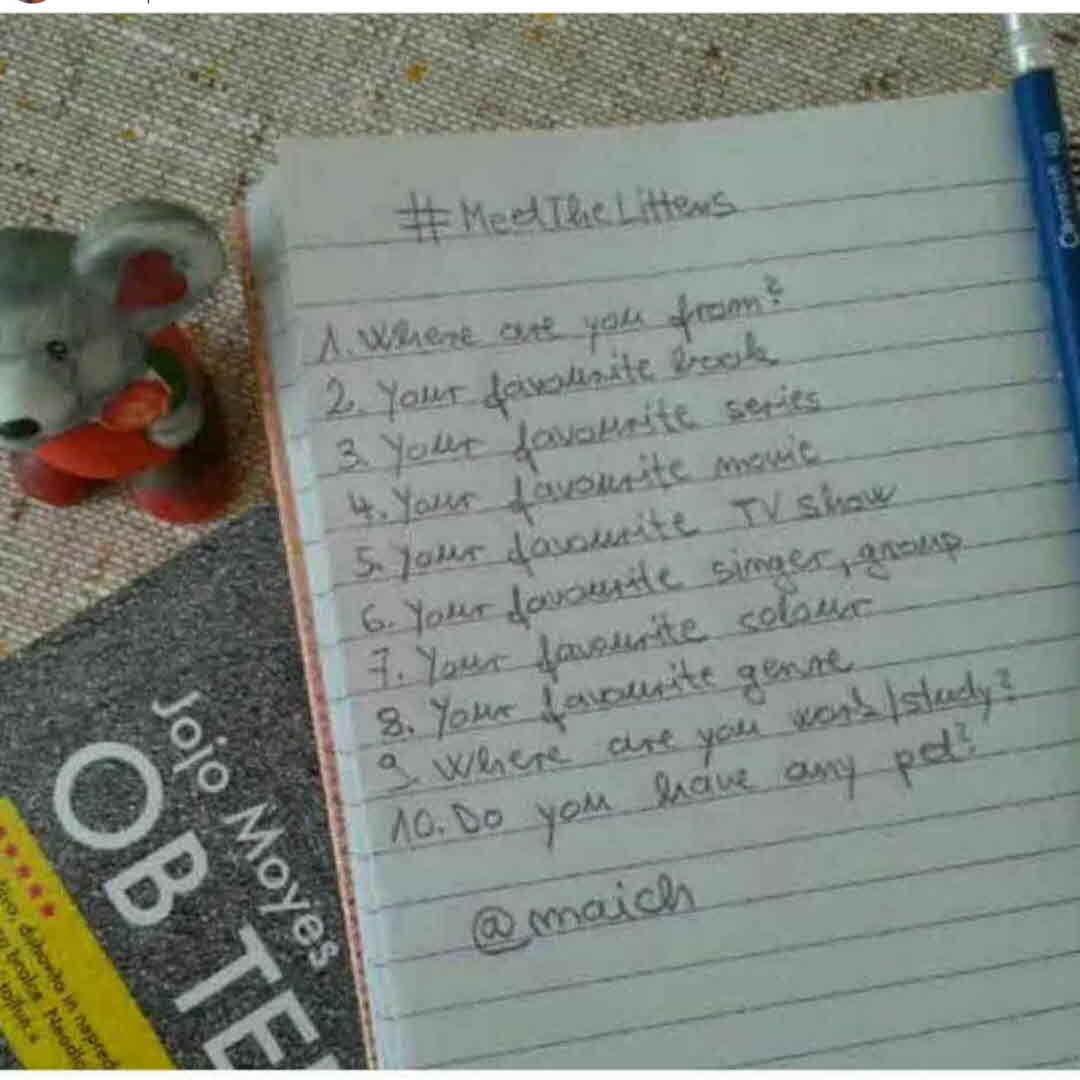 #MeetTheLittens
1. Where are you from?
2. Your favourite book
3. Your favourite series
4. Your favourite movie
5. Your favourite TV show
6. Your favourite singer, group
7. Your favourite colour
8. Your favourite genre
9. Where are you work/study?
10. Do you have any pet?
@maich
Jojo Moyes
OB TE
duhovito in napred
bralce.